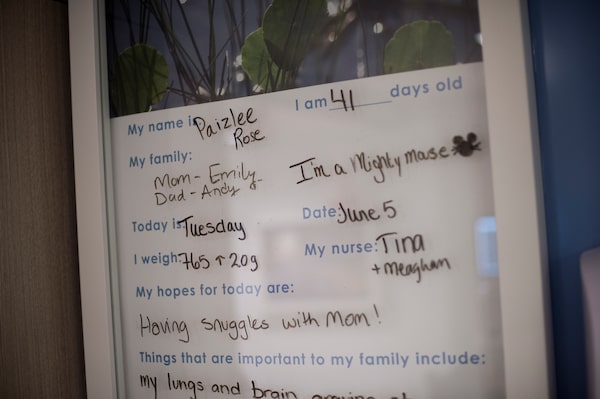 My name is Paizlee Rose
I am 41 days old
My family:
Mom - Emily
Dad - Andy
I'm a Mighty mouse
Today is Tuesday
Date: June 5
I weigh: 765 ↑ 20g
My nurse: Tina
+ meagham
My hopes for today are:
Having snuggles with Mom!
Things that are important to my family include:
my lungs and brain